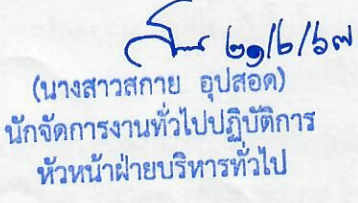 ๒๑/๒/๖๗
(นางสาวสกาย อุปสอด)
นักจัดการงานทั่วไปปฏิบัติการ
หัวหน้าฝ่ายบริหารทั่วไป